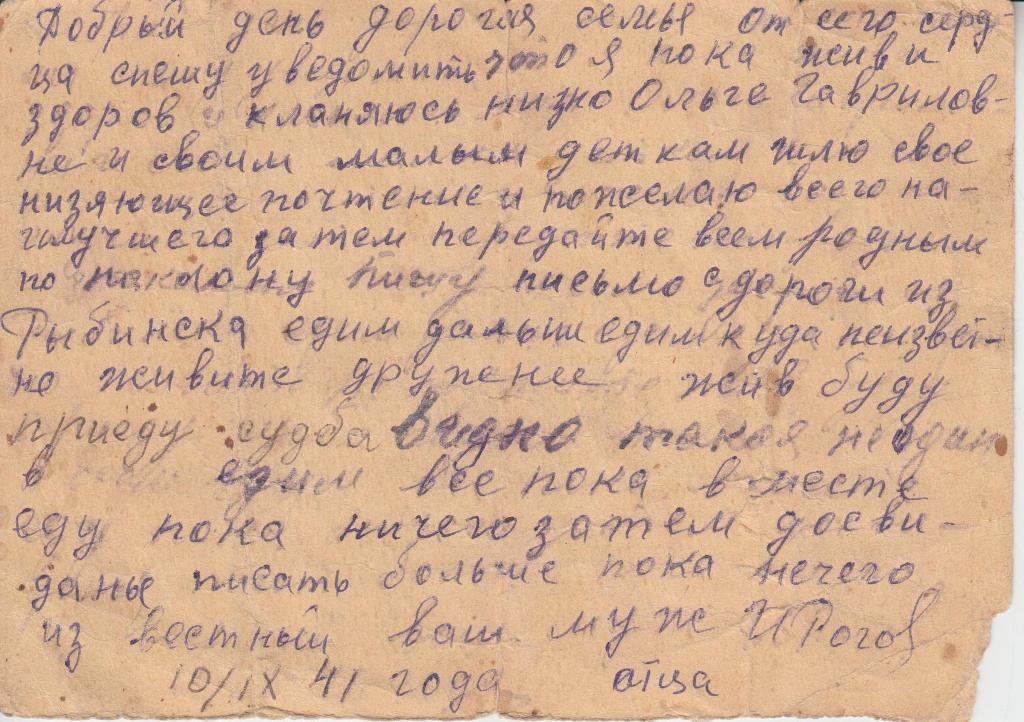 Добрый день дорогия семья от сего серд-
ца спешу уведомить што я пока жив и
здоров и кланяюсь низко Ольге Гаврилов-
не и своим малым деткам шлю свое
низяющее почтение и пожелаю всего на-
илучшего затем передайте всем родным
по поклону пишу письмо здороги из
Рыбинска едим дальш едим куда неизвест-
но живите дружнее жив буду
приеду судба видно такоя неодин
в едим все пока вместе
еду пока ничего затем досви-
данье писать больше пока нечего
из вестный ваш муж И Рогов
10/IX 41 года отца